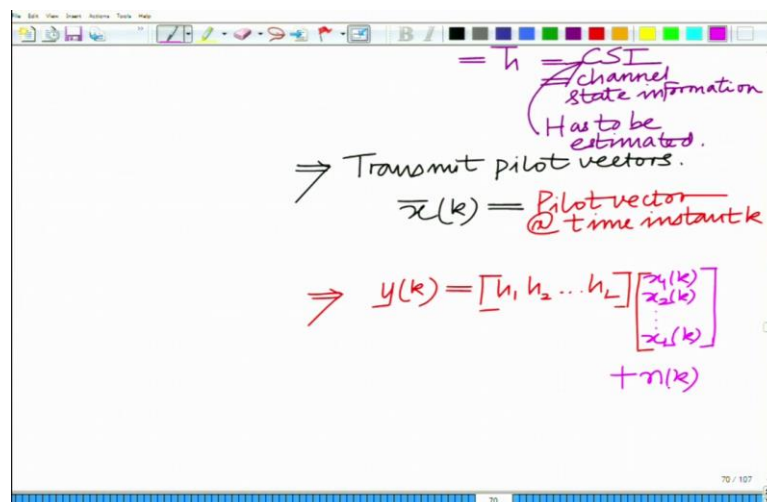 File Edit View Insert Actions Tools Help
B I
= h̄ = CSI
channel
state information
Has to be
estimated.
⇒ Transmit pilot vectors.
x̄(k) = Pilot vector
@ time instant k
⇒ y(k) = [h₁ h₂ ... h_L] [x₁(k)
x₂(k)
⋮
x_L(k)]
+ n(k)
70 / 107
70